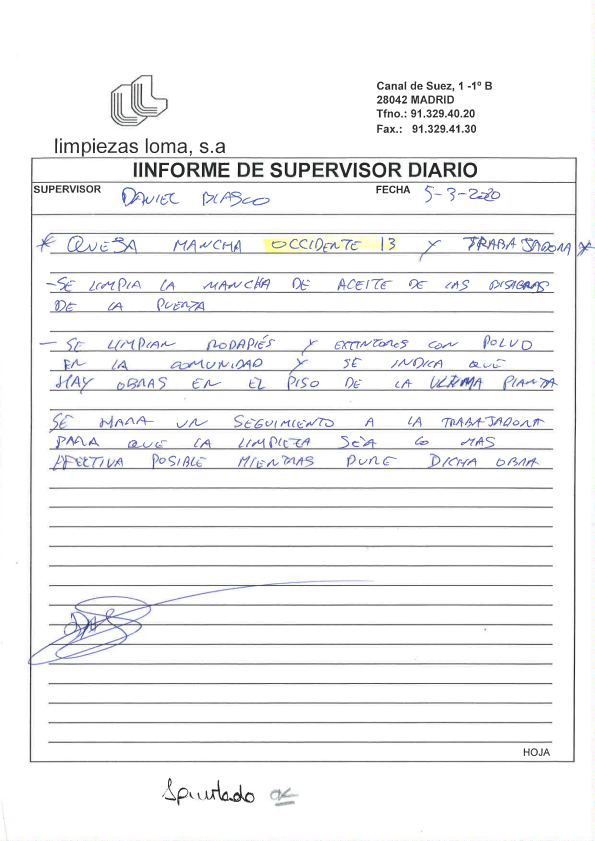 Canal de Suez, 1 -1º B
28042 MADRID
Tfno.: 91.329.40.20
Fax.: 91.329.41.30
limpiezas loma, s.a
IINFORME DE SUPERVISOR DIARIO
SUPERVISOR DANIEL BLASCO FECHA 5-3-2020
* QUEJA MANCHA OCCIDENTE 13 Y TRABAJADORA *
- SE LIMPIA LA MANCHA DE ACEITE DE LAS BISAGRAS
DE LA PUERTA
- SE LIMPIAN RODAPIÉS Y EXTINTORES CON POLVO
EN LA COMUNIDAD Y SE INDICA QUE
HAY OBRAS EN EL PISO DE LA ULTIMA PLANTA
SE HARA UN SEGUIMIENTO A LA TRABAJADORA
PARA QUE LA LIMPIEZA SEA LO MAS
EFECTIVA POSIBLE MIENTRAS DURE DICHA OBRA
HOJA
ok